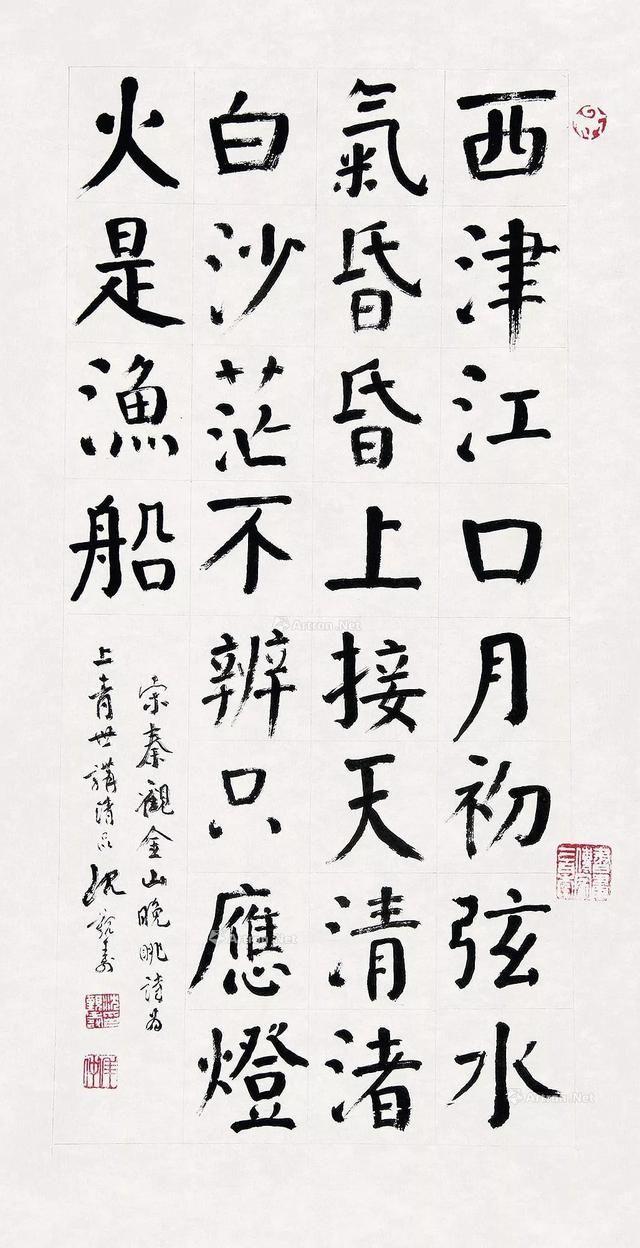 西津江口月初弦水
氣昏昏上接天清渚
白沙茫不辨只應燈
火是漁船
宋秦觀金山晚眺詩為
上青世講清品 沈覲壽
Artron.Net
Artron.Net
Artron.Net